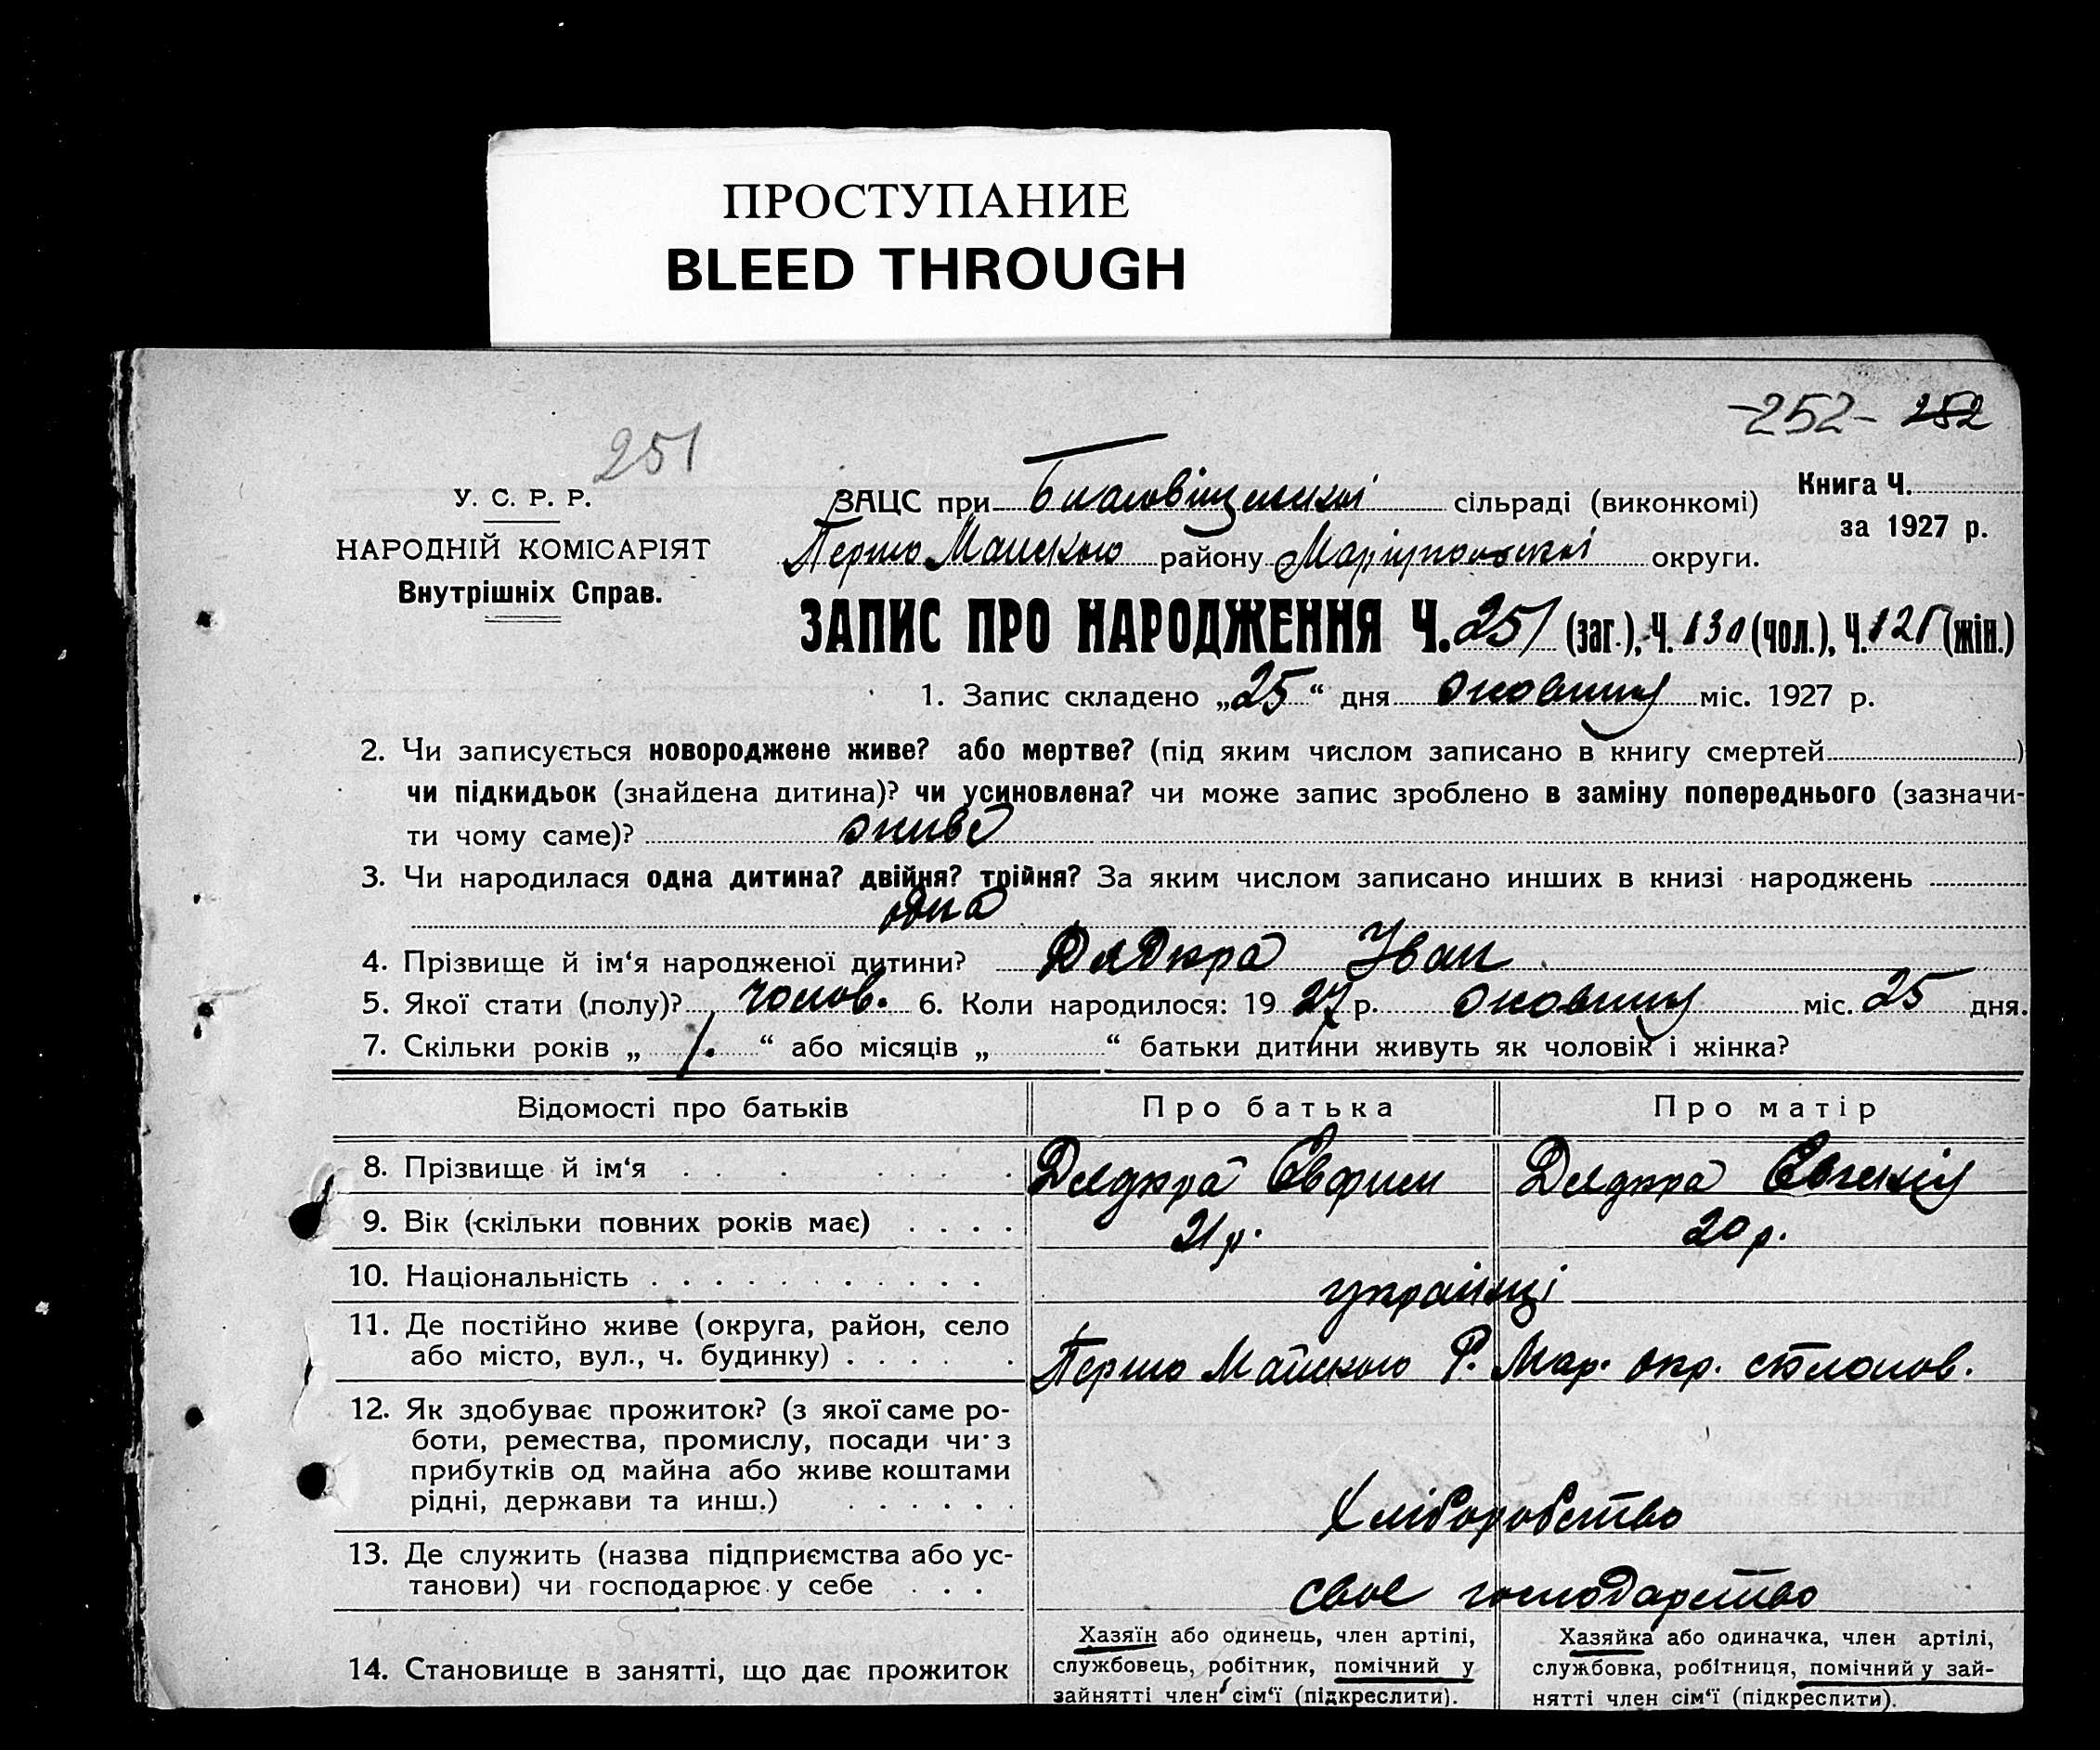 ПРОСТУПАНИЕ
BLEED THROUGH
-252- 252
251
У. С. Р. Р.
НАРОДНІЙ КОМІСАРІЯТ
Внутрішніх Справ.
ЗАЦС при сільраді (виконкомі)
Книга Ч.
за 1927 р.
Першо Майського району Маріупольської округи.
ЗАПИС ПРО НАРОДЖЕННЯ Ч. 251 (заг.), Ч. 130 (чол.), Ч. 121 (жін.)
1. Запис складено „25“ дня жовтня міс. 1927 р.
2. Чи записується новороджене живе? або мертве? (під яким числом записано в книгу смертей )
чи підкидьок (знайдена дитина)? чи усиновлена? чи може запис зроблено в заміну попереднього (зазначи-
ти чому саме)? живе
3. Чи народилася одна дитина? двійня? трійня? За яким числом записано инших в книзі народжень
одна
4. Прізвище й ім‘я народженої дитини? Дядюра Іван
5. Якої стати (полу)? чолов. 6. Коли народилося: 1927 р. жовтня міс. 25 дня.
7. Скільки років „ 1. “ або місяців „ “ батьки дитини живуть як чоловік і жінка?
Відомості про батьків Про батька Про матір
8. Прізвище й ім‘я . . . . . . . Дядюра Євфим Дядюра Євгенія
9. Вік (скільки повних років має) . . . . 21 р. 20 р.
10. Національність . . . . . . . . . . . українці
11. Де постійно живе (округа, район, село
або місто, вул., ч. будинку) . . . . . Першо Майського Р. Мар. окр.
12. Як здобуває прожиток? (з якої саме ро-
боти, ремества, промислу, посади чи з
прибутків од майна або живе коштами
рідні, держави та инш.) . . . . . . Хліборобство
13. Де служить (назва підприємства або ус-
танови) чи господарює у себе . . . своє господарство
14. Становище в занятті, що дає прожиток
Хазяїн або одинець, член артілі,
службовець, робітник, помічний у
зайнятті член сім‘ї (підкреслити).
Хазяйка або одиначка, член артілі,
службовка, робітниця, помічний у зай-
нятті член сім‘ї (підкреслити).